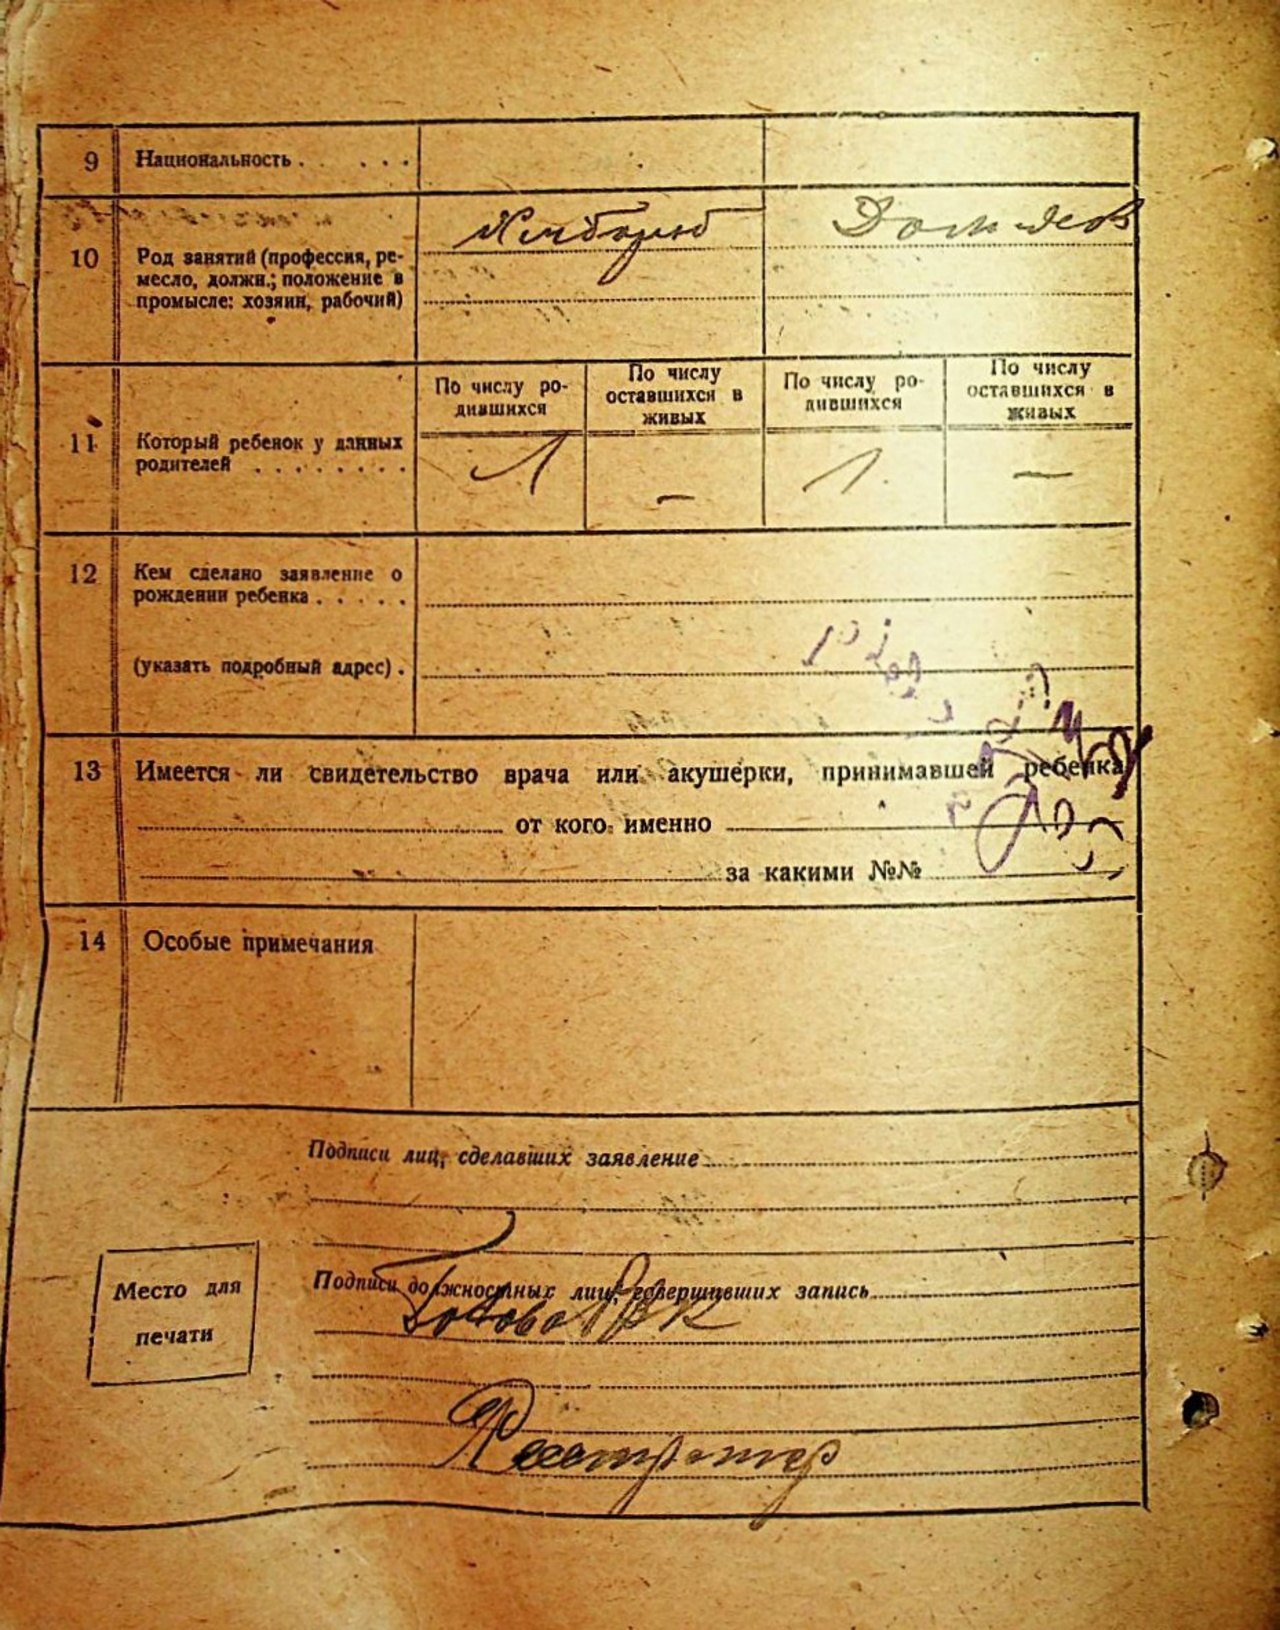 9 Национальность . . . . .
Хлебороб Домохоз
10 Род занятий (профессия, ре-
месло, должн.; положение в
промысле: хозяин, рабочий)
По числу ро- По числу По числу ро- По числу
дившихся оставшихся в дившихся оставшихся в
живых живых
11 Который ребенок у данных
родителей . . . . . . . .
1 - 1 -
12 Кем сделано заявление о
рождении ребенка . . . . .
(указать подробный адрес) .
13 Имеется ли свидетельство врача или акушерки, принимавшей ребенка
от кого именно
за какими №№
14 Особые примечания
Подписи лиц, сделавших заявление
Место для
печати
Подписи должностных лиц, совершивших запись